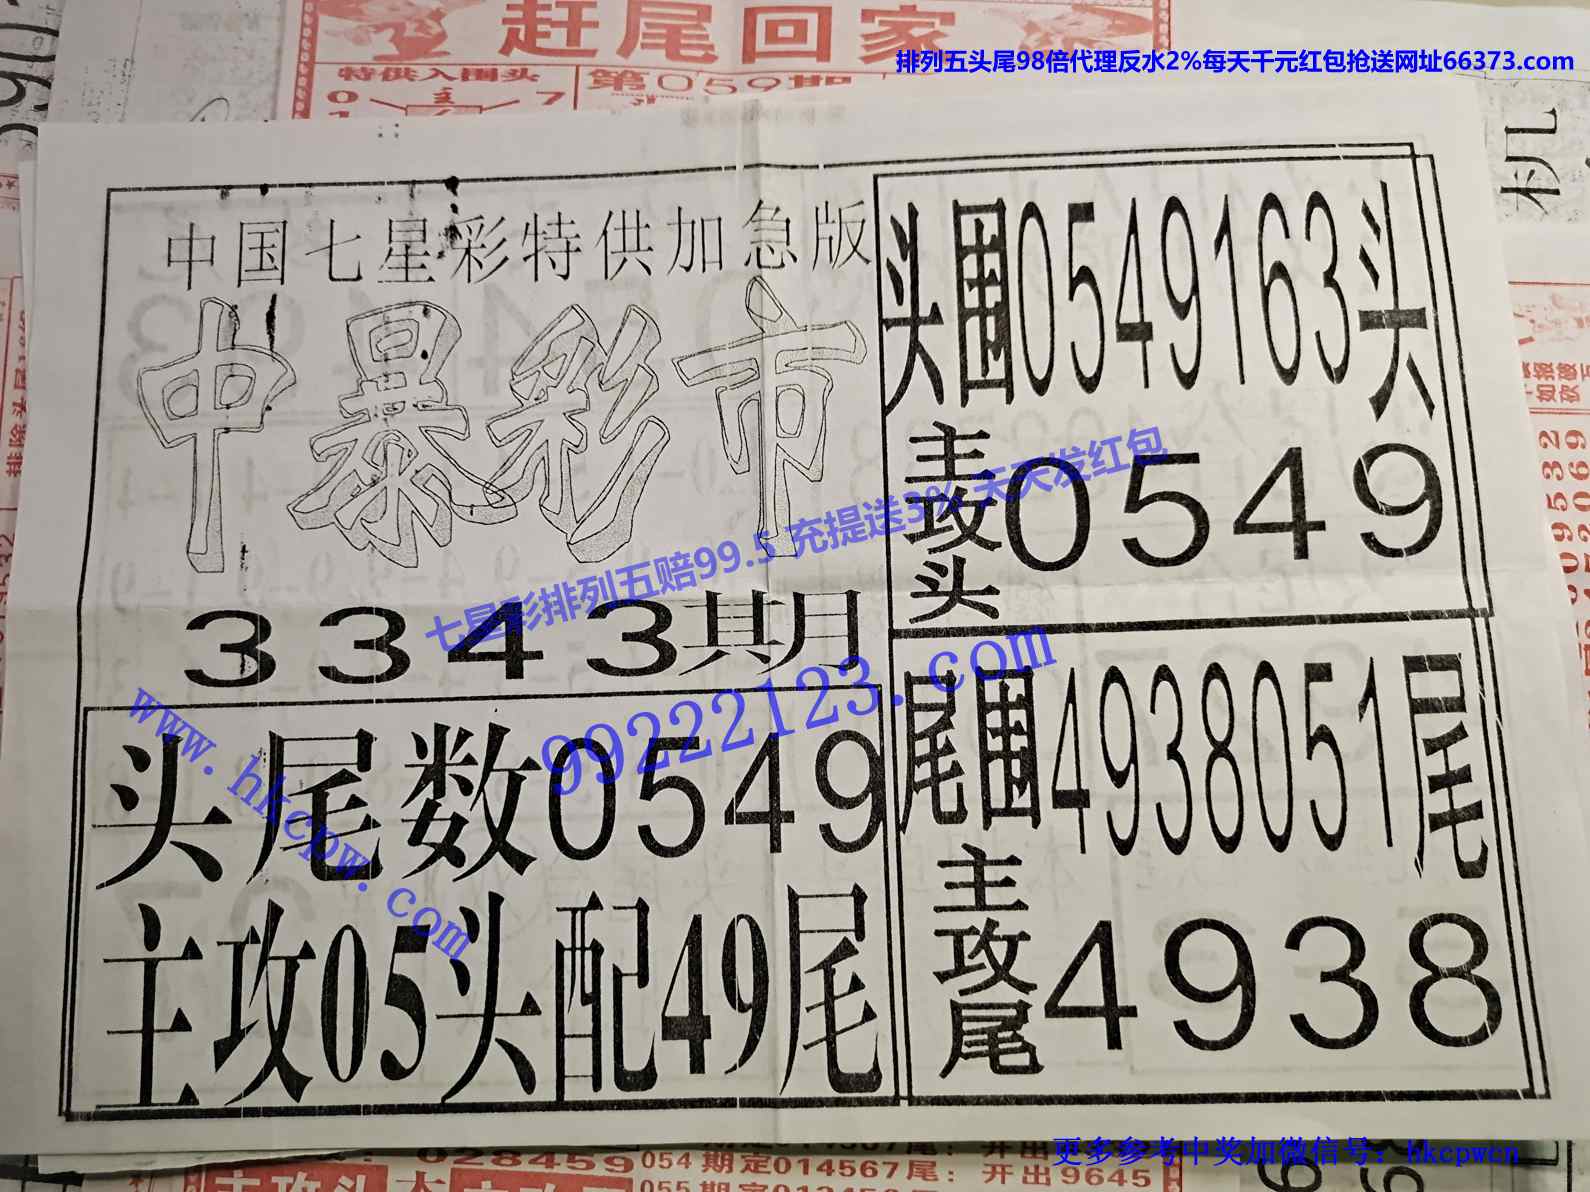 赶尾回家
排列五头尾98倍代理反水2%每天千元红包抢送网址66373.com
特供入围头
第059期
0 主 7
机
中国七星彩特供加急版
中暴彩市
3343期
头尾数0549
主攻05头配49尾
头围0549163头
主攻头0549
尾围4938051尾
主攻尾4938
七星彩排列五赔99.5 充提送3% 天天发红包
99222123.com
www.hkcpw.com
更多参考中奖加微信号：hkcpwcn
028459
054期定014567尾：开出9645